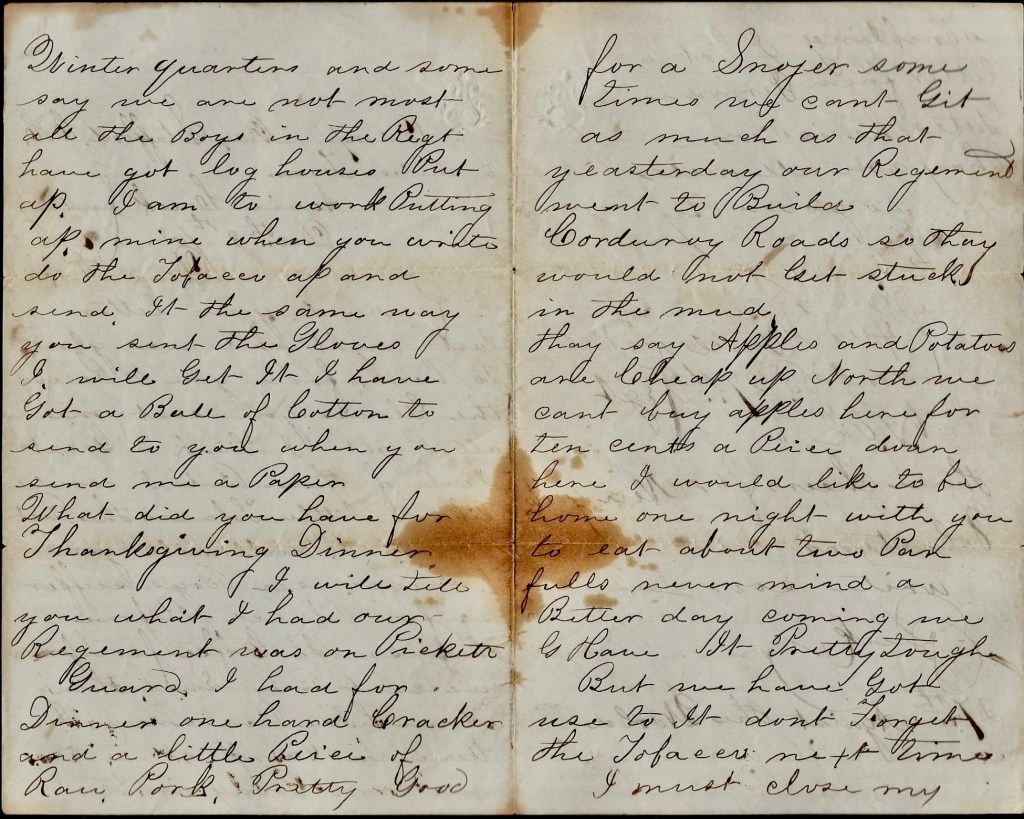 Winter quarters and some
say we are not most
all the Boys in the Regt
have got log houses Put
ap. I am to work Putting
ap. mine when you write
do the Tobacco ap and
send. It the same way
you sent the Gloves
I will Get It I have
Got a Bale of Cotton to
send to you when you
send me a Paper
What did you have for
Thanksgiving Dinner
I will tell
you what I had our
Regement was on Pickett
Guard. I had for
Dinner one hard Cracker
and a little Peice of
Raw Pork, Pretty Good
for a Snojer some
times we cant Git
as much as that
yeasterday our Regement
went to Build
Corduroy Roads so thay
would not Get stuck
in the mud
thay say Apples and Potatoes
are Cheap up North we
cant buy apples here for
ten cents a Peice down
here I would like to be
home one night with you
to eat about two Pan
fulls never mind a
Better day coming we
Have It Pretty tough
But we have Got
use to It dont Forget
the Tobacco next time
I must close my